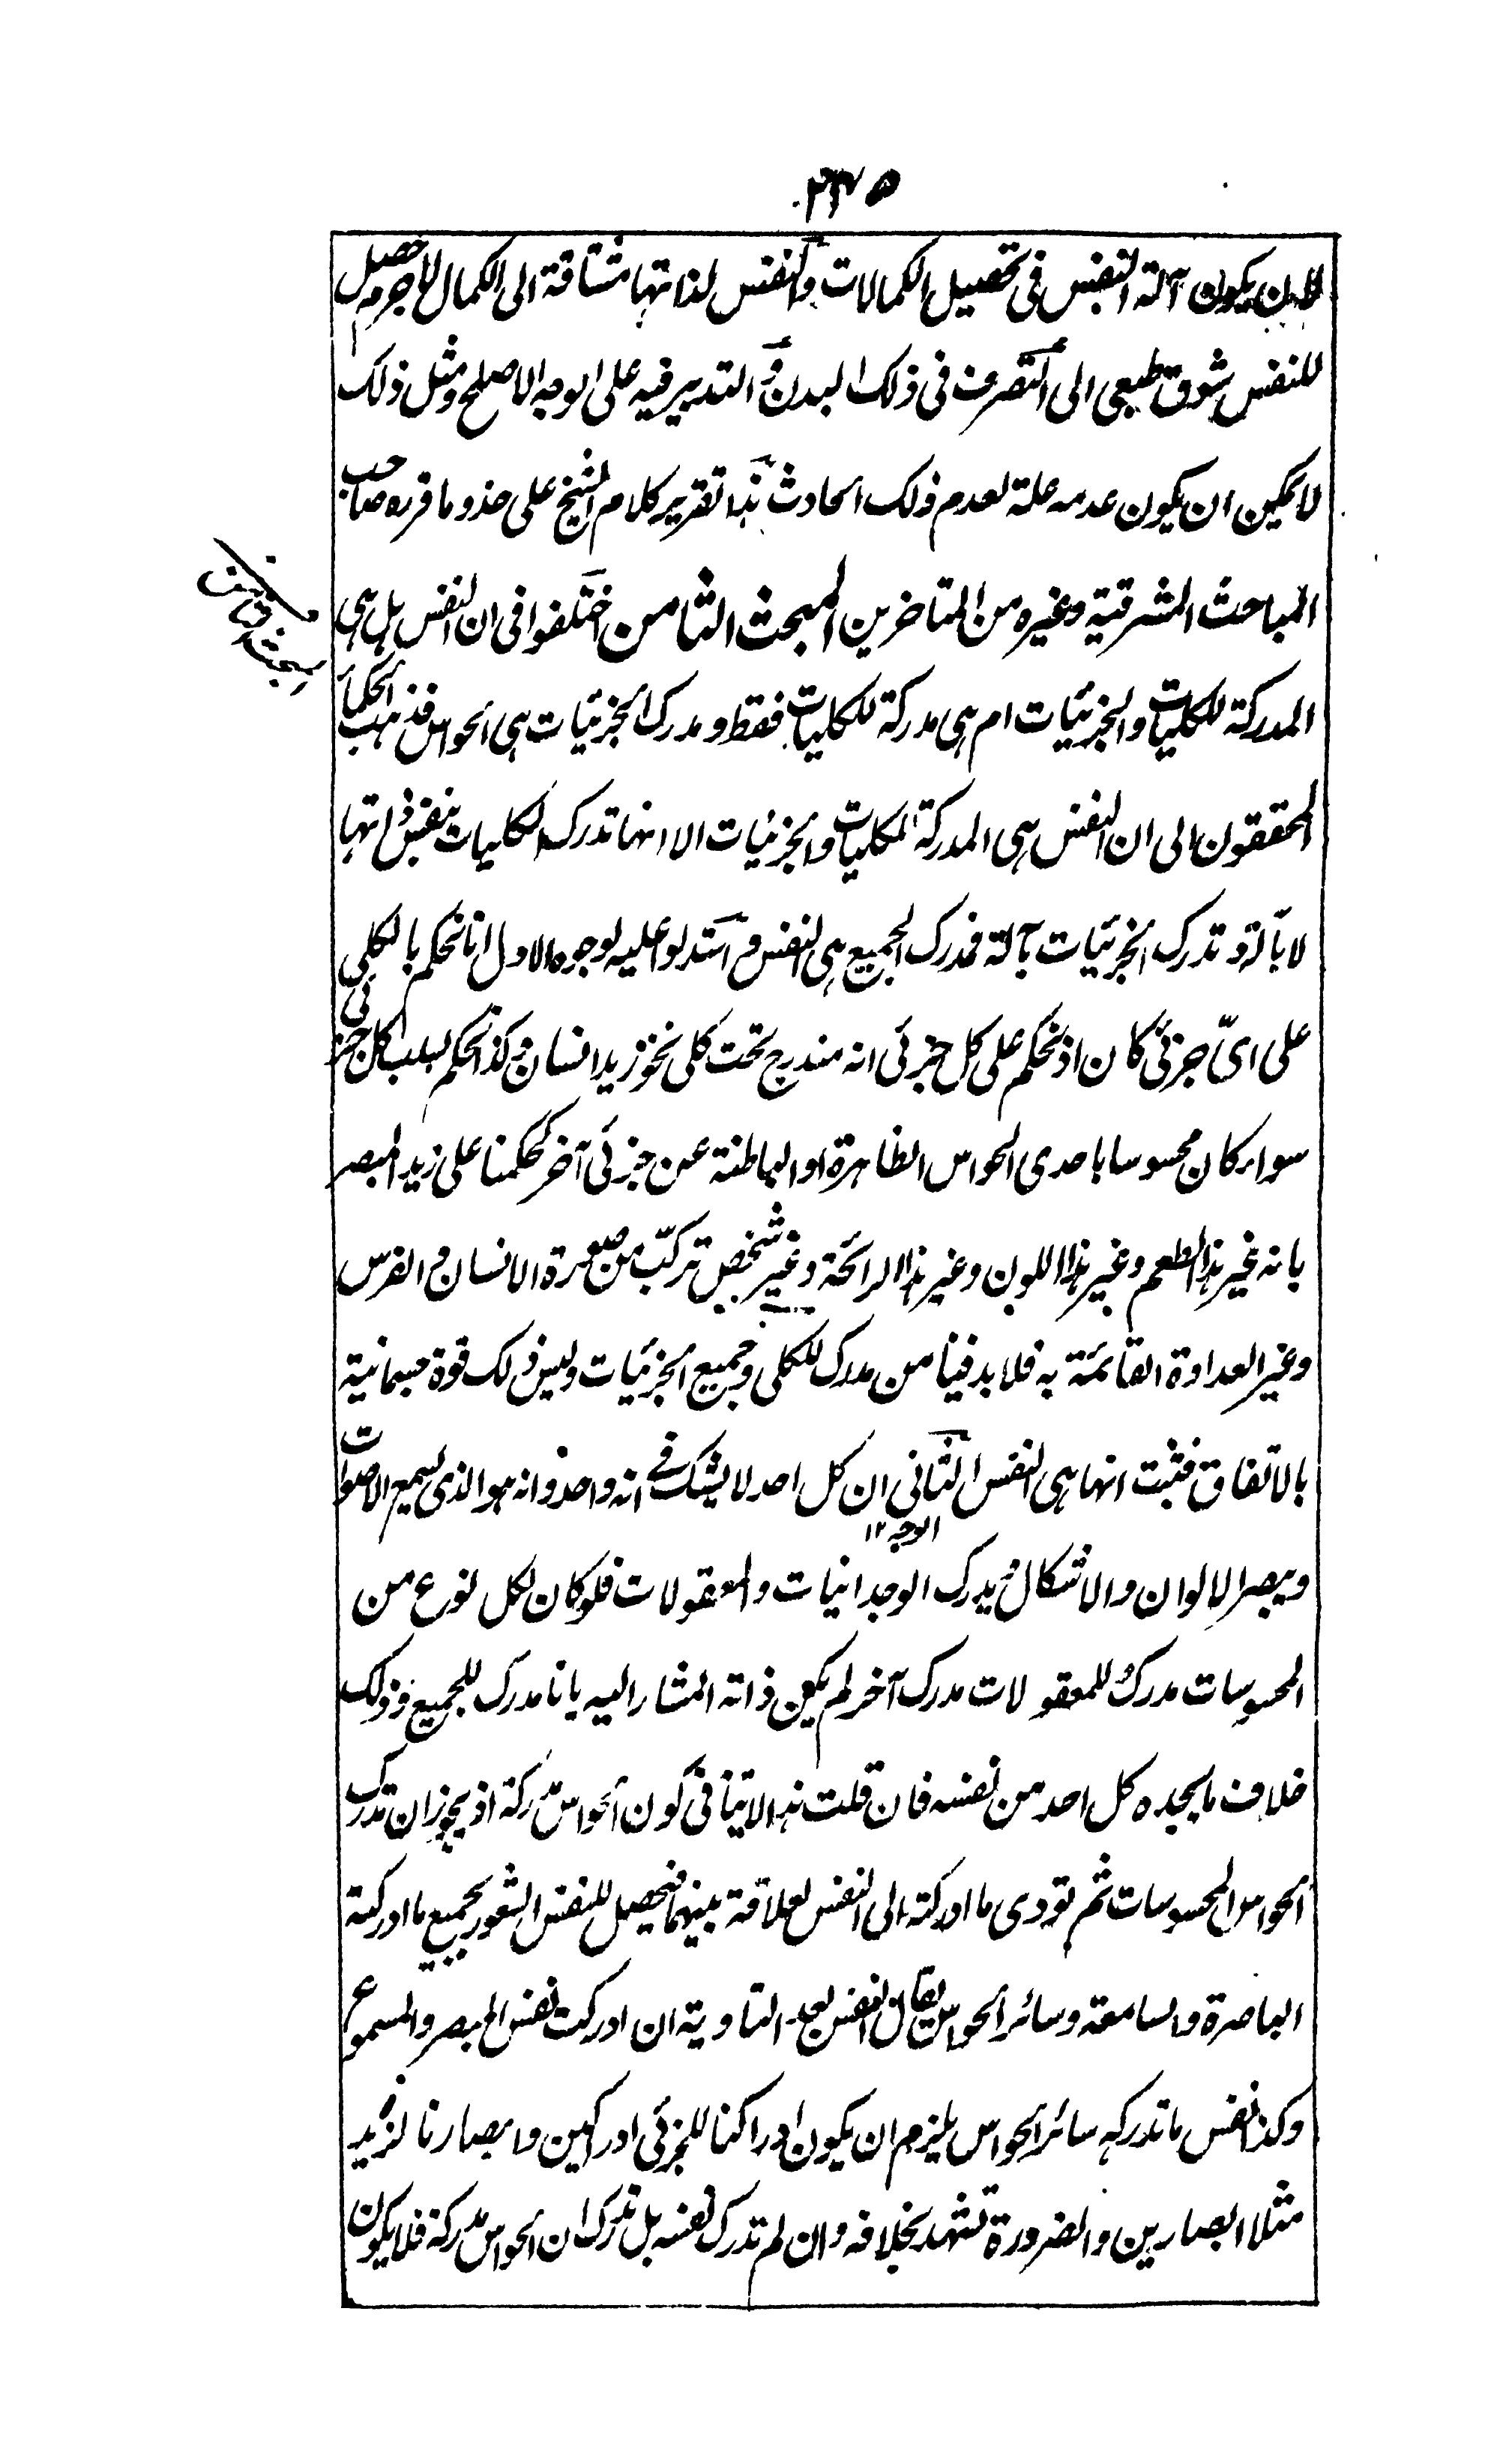 ٢٣٥
لان يكون آلة النفس فى تحصيل الكمالات والنفس لذاتها مشتاقة الى الكمال لاجرم حصل
للنفس شوق طبيعى الى التصرف فى ذلك البدن و التدبير فيه على الوجه الاصلح ومثل ذلك
لا يمكن ان يكون عدمه علة لعدم ذلك الحادث هذا تقرير كلام الشيخ على حذو ما قرره صاحب
المباحث المشرقية وغيره من المتاخرين المبحث الثامن اختلفوا فى ان النفس هل هى
المدركة للكليات والجزئيات ام هى مدركة للكليات فقط و مدرك الجزئيات هى الحواس فذهب الحكماء
المحققون الى ان النفس هى المدركة للكليات والجزئيات الا انها تدرك الكليات بنفس ذاتها
لا بآلة و تدرك الجزئيات بآلة فمدرك الجميع هى النفس و استدلوا عليه لوجوه الاول انا نحكم بالكلى
على اىّ جزئى كان اذ نحكم على كل جزئى انه مندرج تحت كلى نحو زيد انسان و كذا نحكم بسلب كل جزئى
سواء كان محسوسا باحدى الحواس الظاهرة او الباطنة عن جزئى آخر كحكمنا على زيد المبصر
بانه غير هذا الطعم وغير هذا اللون وغير هذا الرائحة وغير شخص تركّب من صورة الانسان و الفرس
وغير العداوة القائمة به فلا بد فينا من مدرك للكلى و جميع الجزئيات وليس ذلك قوة جسمانية
بالاتفاق فثبت انها هى النفس الثانى ان كل احد لا يشك فى انه واحد وانه هو الذى يسمع الاصوات
الوجه ١٢
ويبصر الالوان والاشكال و يدرك الوجدانيات والمعقولات فلو كان لكل نوع من
المحسوسات مدرك و للمعقولات مدرك آخر لم يكن ذاته المشار اليه بانا مدرك للجميع و ذلك
خلاف ما يجده كل احد من نفسه فان قلت هذا لا ينافى كون الحواس مدركة اذ يجوز ان تدرك
الحواس المحسوسات ثم تودى ما ادركته الى النفس لعلاقة بينهما فيحصل للنفس الشعور بجميع ما ادركته
الباصرة والسامعة وسائر الحواس يقال النفس بعد التاوية ان ادركت نفس المبصر والمسموع
وكذا نفس ما تدركه سائر الحواس يلزم ان يكون ادراكنا للجزئى ادراكين وابصارنا لزيد
مثلا ابصارين والضرورة تشهد بخلافه وان لم تدرك نفسه بل تدرك ان الحواس مدركة فلا يكون